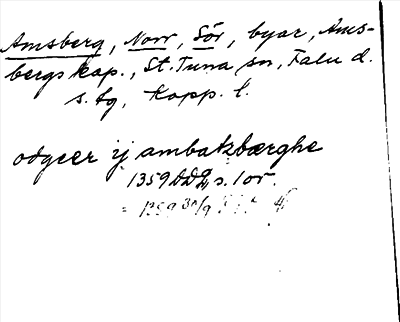 Amsberg, Norr, Sör, byar, Ams-
bergs kap., St. Tuna sn, Falu d.
s. tg, Kopp. l.
odgeer ij ambatzbærghe
1359 DD s. 1 or.
1359 30/9